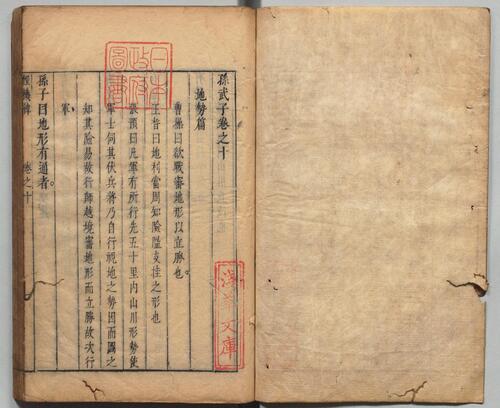 孫武子卷之十
地勢篇
曹操曰欲戰審地形以立勝也。
王晳曰地利當周知險隘支挂之形也
張預曰凡軍有所行先五十里內山川形勢使
軍士伺其伏兵將乃自行視地之勢因而圖之
知其險易故行師越境審地形而立勝故次行
軍
孫子曰地形有通者。
卷之十
日本
政府
圖書
淺草文庫